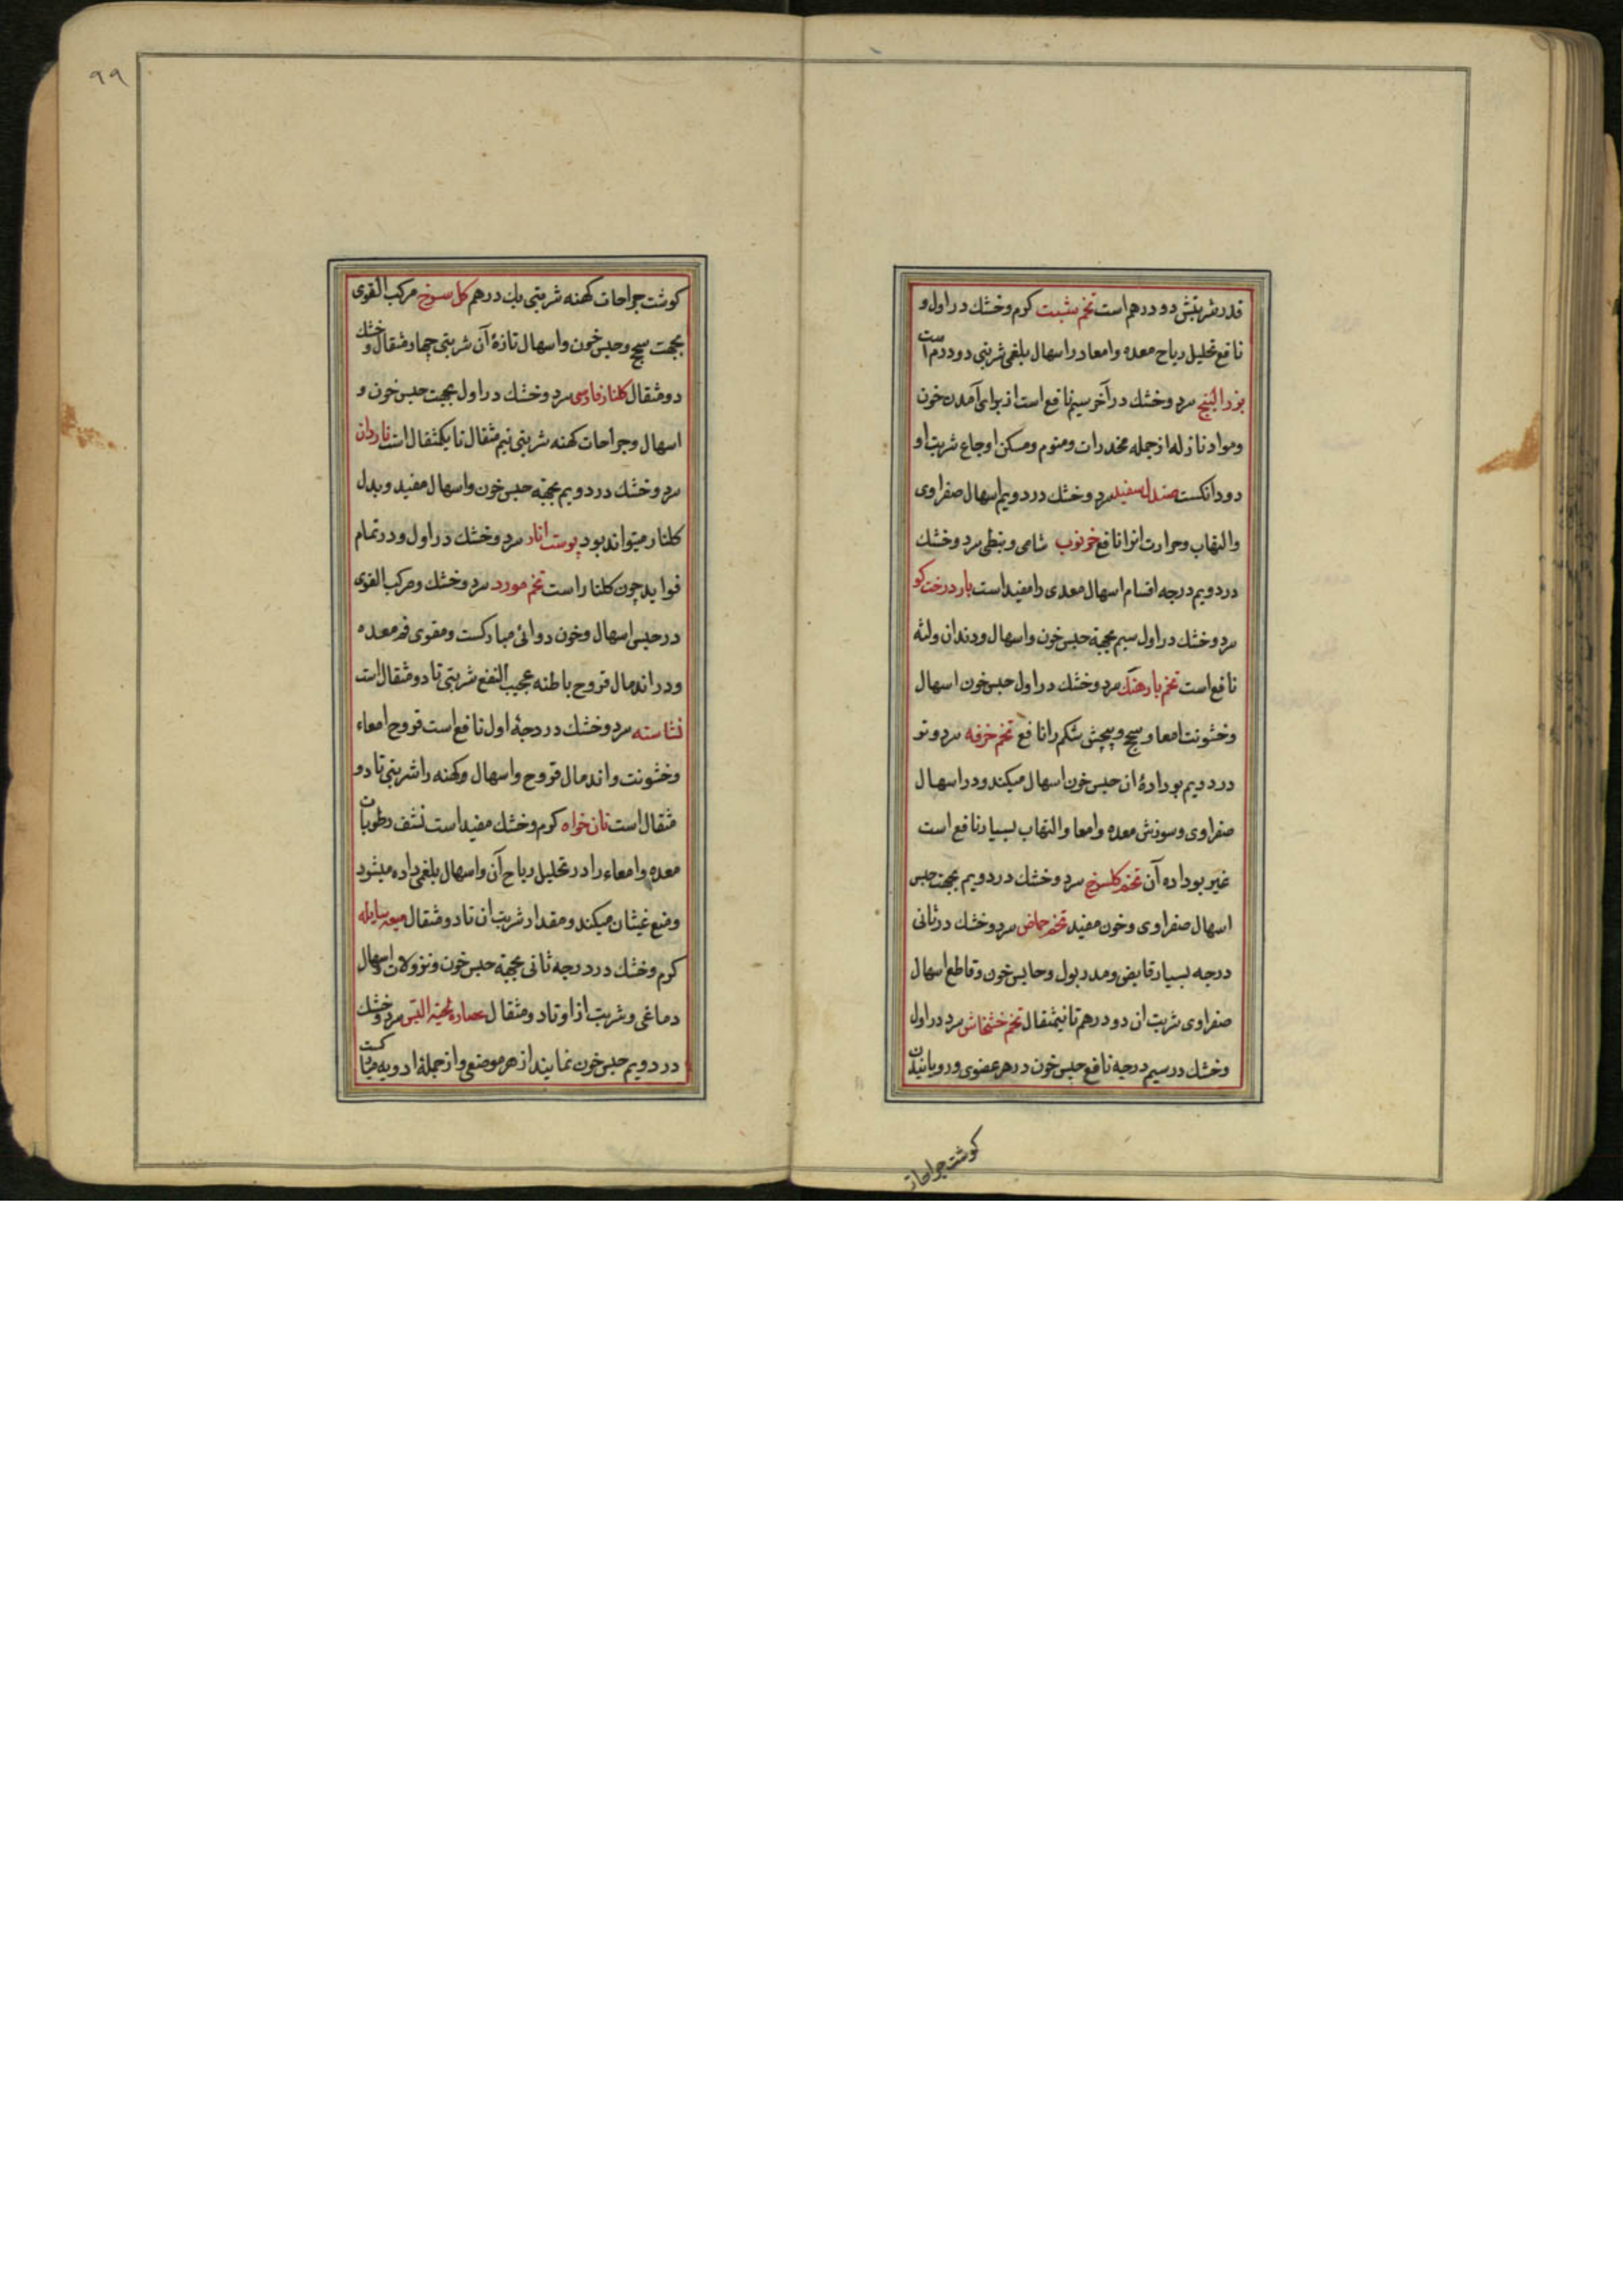 قدر شربتش دو درهم است تخم شبت کرم و خشك در اول و
نافع تحلیل ریاح معده و امعا در اسهال بلغمی شربتی دو درم است
بزر البنج سرد و خشك در آخر سیم نافع است از برای آمدن خون
و مواد نازله از جمله مخدرات و منوم و مسکن اوجاع شربت او
دو دانکست صندل سفید سرد و خشك در دویم اسهال صفراوی
و التهاب و حرارت انرا نافع خرنوب شامی و نبطی سرد و خشك
در دویم درجه اقسام اسهال معدی را مفید است بار درخت کو
سرد و خشك در اول سیم بجهة حبس خون و اسهال و دندان و لثه
نافع است تخم بارهنك سرد و خشك در اول حبس خون اسهال
و خشونت امعا و سحج و پیچش شکم را نافع تخم خرفه سرد و تر
در دویم بو داده ان حبس خون اسهال میکند و در اسهال
صفراوی و سوزش معده و امعا و التهاب بسیار نافع است
غیر بو داده آن تخم کلسرخ سرد و خشك در دویم بجهت حبس
اسهال صفراوی و خون مفید تخم حماض سرد و خشك در ثانی
درجه بسیار قابض و مدر بول و حابس خون و قاطع اسهال
صفراوی شربت ان دو درهم تا نیمثقال تخم خشخاش سرد در اول
و خشك در سیم درجه نافع حبس خون در هر عضوی و رویانیدن
کوشت جراحات
۹۹
کوشت جراحات کهنه شربتی یك درهم کل سرخ مرکب القوی
بجهت سحج و حبس خون و اسهال تازۀ آن شربتی چهار مثقال و خشك
دو مثقال کلنار فارسی سرد و خشك در اول بجهت حبس خون و
اسهال و جراحات کهنه شربتی نیم مثقال تا یکمثقال است ناردان
سرد و خشك در دویم بجهة حبس خون و اسهال مفید و بدل
کلنار میتواند بود پوست انار سرد و خشك در اول و در تمام
فواید چون کلنار است تخم مورد سرد و خشك و مرکب القوی
در حبس اسهال و خون دوائی مبارکست و مقوی فم معده
و در اندمال قروح باطنه عجیب النفع شربتی تا دو مثقال است
نشاسته سرد و خشك در درجۀ اول نافع است قروح امعاء
و خشونت و اندمال قروح و اسهال و کهنه را شربتی تا دو
مثقال است نان خواه کرم و خشك مفید است نشف رطوبات
معده و امعاء را در تحلیل ریاح آن و اسهال بلغمی داده میشود
و منع غیثان میکند و مقدار شربت ان تا دو مثقال میعه سایله
کرم و خشك در درجه ثانی بجهة حبس خون و نزولات و اسهال
دماغی و شربت از او تا دو مثقال عصاره لحیة التیس سرد و خشك
در دویم حبس خون نمایند از هر موضعی و از جملۀ ادویه